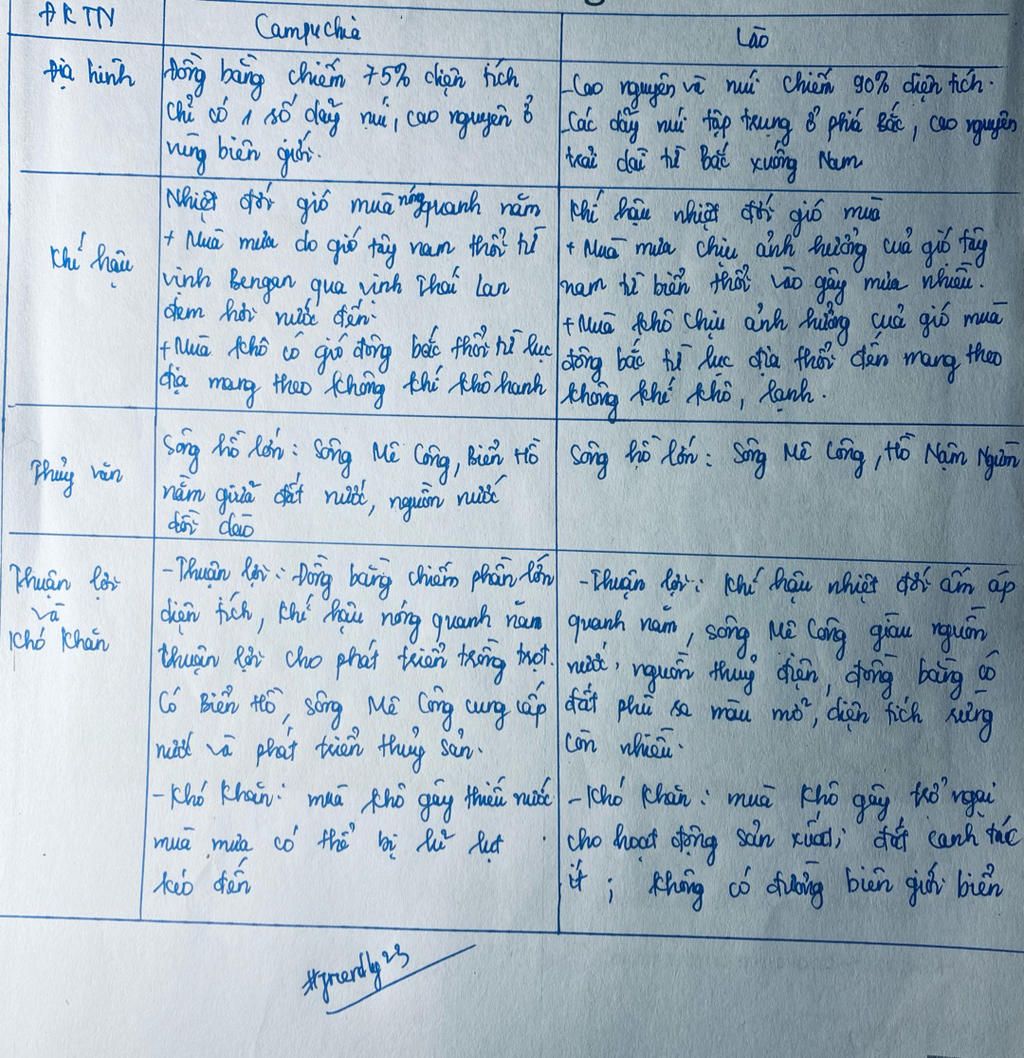 ĐKTN
Campuchia
Lào
Địa hình
Đồng bằng chiếm 75% diện tích
chỉ có 1 số dãy núi, cao nguyên ở
vùng biên giới.
-Cao nguyên và núi chiếm 90% diện tích.
-Các dãy núi tập trung ở phía Bắc, cao nguyên
trải dài từ Bắc xuống Nam
Khí hậu
Nhiệt đới gió mùa nóng quanh năm
+ Mùa mưa do gió tây nam thổi từ
vịnh Bengan qua vịnh Thái Lan
đem hơi nước đến.
+ Mùa khô có gió đông bắc thổi từ lục
địa mang theo không khí khô hanh
Khí hậu nhiệt đới gió mùa
+ Mùa mưa chịu ảnh hưởng của gió tây
nam từ biển thổi vào gây mưa nhiều.
+ Mùa khô chịu ảnh hưởng của gió mùa
đông bắc từ lục địa thổi đến mang theo
không khí khô, lạnh.
Thủy văn
Sông hồ lớn: Sông Mê Công, Biển Hồ
nằm giữa đất nước, nguồn nước
dồi dào
Sông hồ lớn: Sông Mê Công, Hồ Nậm Ngừm
Thuận lợi
và
Khó khăn
-Thuận lợi: Đồng bằng chiếm phần lớn
diện tích, khí hậu nóng quanh năm
thuận lợi cho phát triển trồng trọt.
Có Biển Hồ, sông Mê Công cung cấp
nước và phát triển thủy sản.
-Khó khăn: mùa khô gây thiếu nước
mùa mưa có thể bị lũ lụt
kéo đến
-Thuận lợi: Khí hậu nhiệt đới ấm áp
quanh năm, sông Mê Công giàu nguồn
nước, nguồn thuỷ điện, đồng bằng có
đất phù sa màu mỡ, diện tích rừng
còn nhiều.
-Khó khăn: mùa khô gây trở ngại
cho hoạt động sản xuất; đất canh tác
ít; không có đường biên giới biển